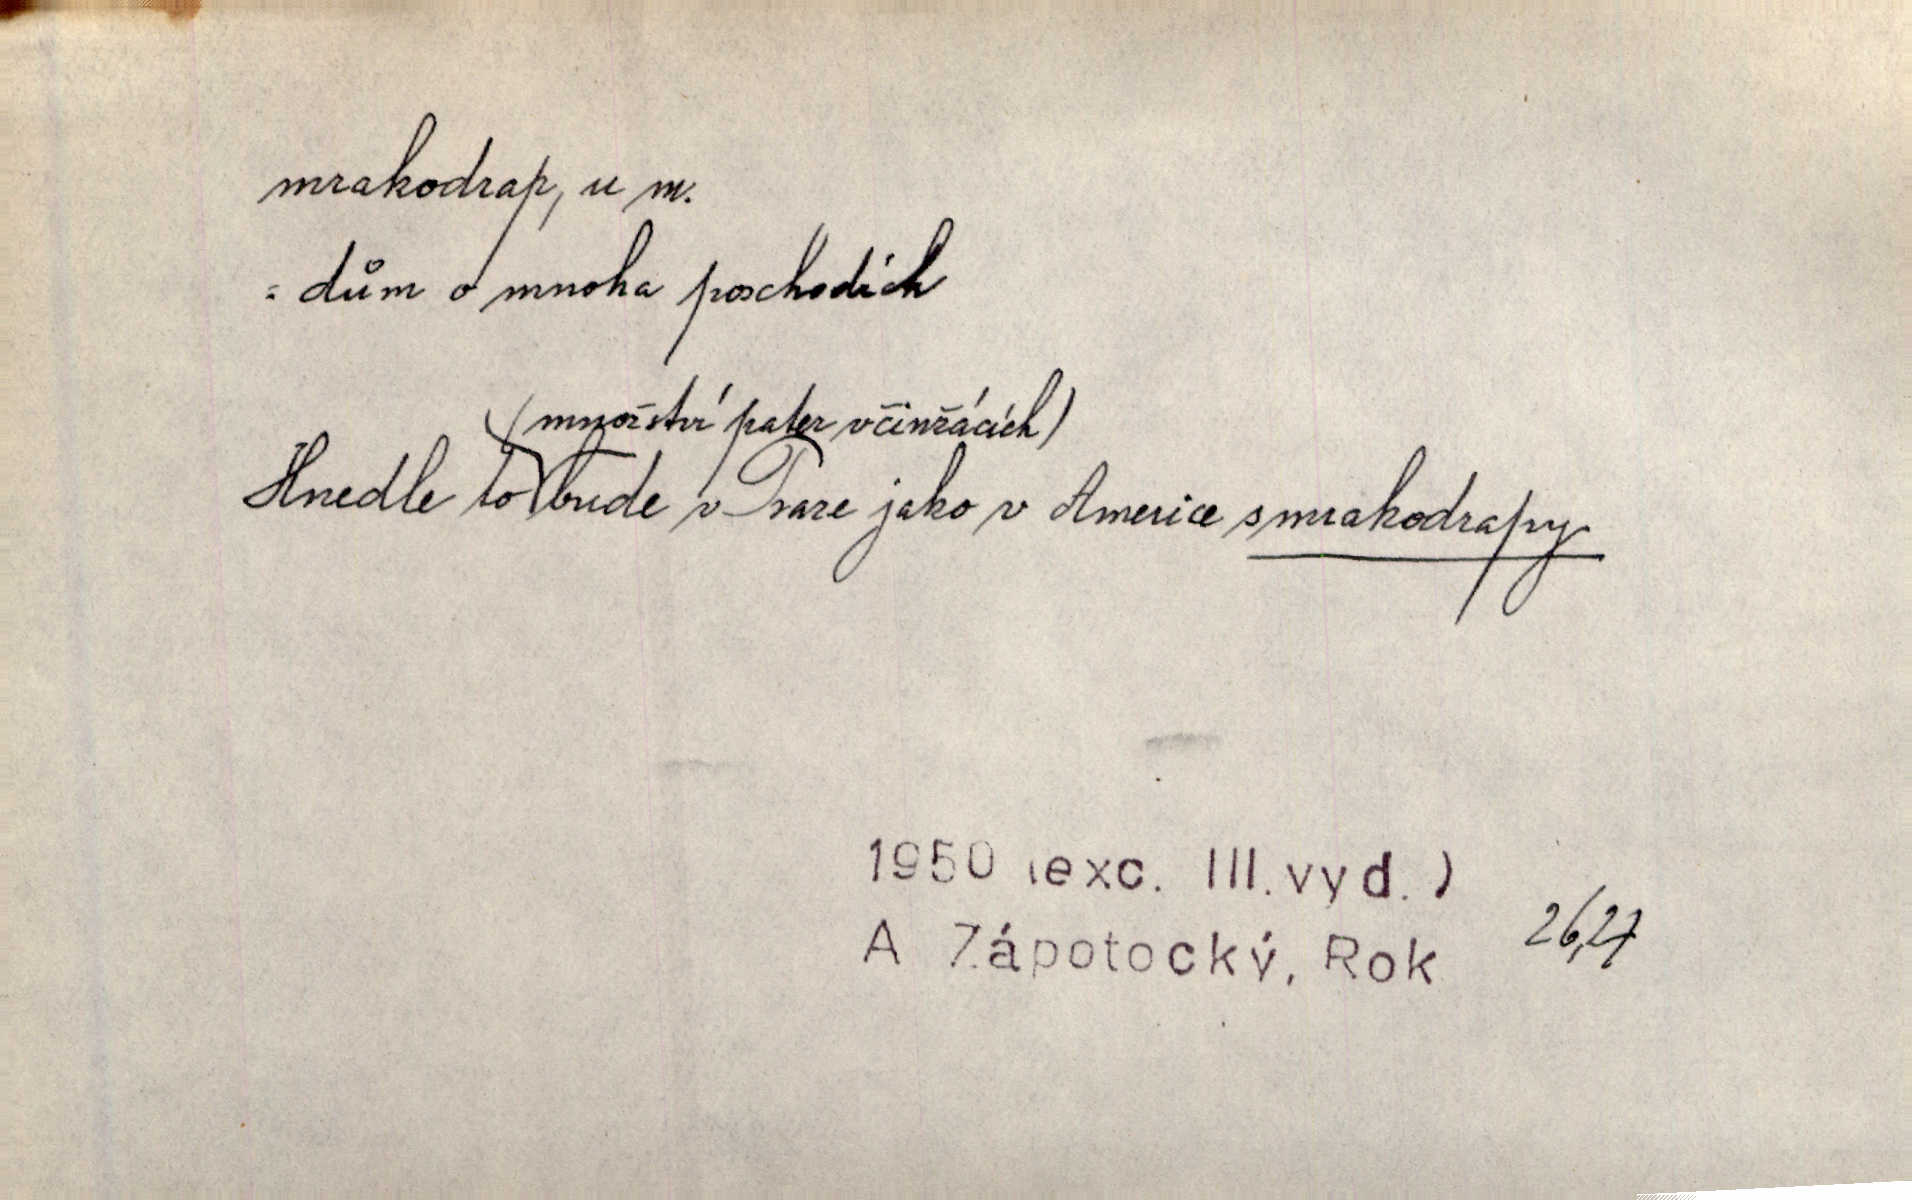 mrakodrap, u m.
= dům o mnoha poschodích
(množství pater v činžácích)
Hnedle to bude v Praze jako v Americe s mrakodrapy.
1950 (exc. III. vyd. )
A Zápotocký, Rok 26,27